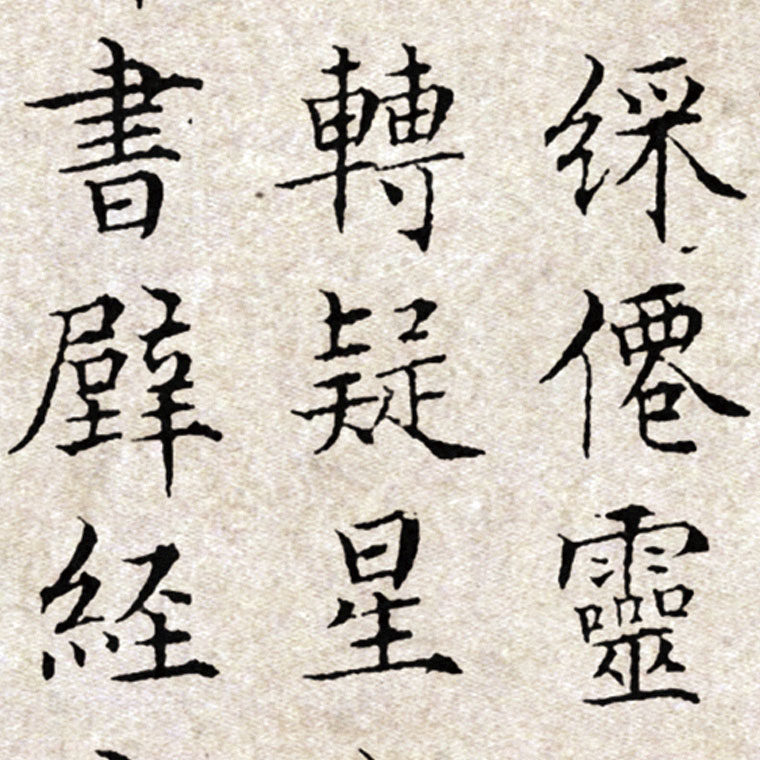 綵僊靈
轉疑星
書壁経